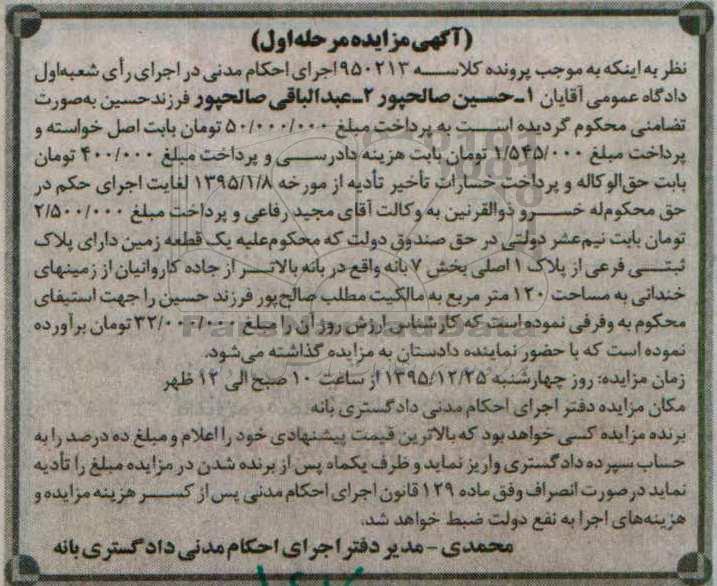 (آگهی مزایده مرحله اول)
نظر به اینکه به موجب پرونده کلاســه ۹۵۰۲۱۳ اجرای احکام مدنی در اجرای رأی شعبه اول
دادگاه عمومی آقایان ۱ـ حسین صالحپور ۲ـ عبدالباقی صالحپور فرزند حسین به صورت
تضامنی محکوم گردیده اســت به پرداخت مبلغ ۵۰/۰۰۰/۰۰۰ تومان بابت اصل خواسته و
پرداخت مبلغ ۱/۵۴۵/۰۰۰ تومان بابت هزینه دادرســی و پرداخت مبلغ ۴۰۰/۰۰۰ تومان
بابت حق الوکاله و پرداخت خسارات تأخیر تأدیه از مورخه ۱۳۹۵/۱/۸ لغایت اجرای حکم در
حق محکوم له خســرو ذوالقرنین به وکالت آقای مجید رفاعی و پرداخت مبلغ ۲/۵۰۰/۰۰۰
تومان بابت نیم عشر دولتی در حق صندوق دولت که محکوم علیه یک قطعه زمین دارای پلاک
ثبتــی فرعی از پلاک ۱ اصلی بخش ۷ بانه واقع در بانه بالاتــر از جاده کاروانیان از زمینهای
خندانی به مساحت ۱۲۰ متر مربع به مالکیت مطلب صالح پور فرزند حسین را جهت استیفای
محکوم به وفرقی نموده است که کارشناس ارزش روز آن را مبلغ ۳۲/۰۰۰/۰۰۰ تومان برآورده
نموده است که با حضور نماینده دادستان به مزایده گذاشته می شود.
زمان مزایده: روز چهارشنبه ۱۳۹۵/۱۲/۲۵ از ساعت ۱۰ صبح الی ۱۲ ظهر
مکان مزایده دفتر اجرای احکام مدنی دادگستری بانه
برنده مزایده کسی خواهد بود که بالاترین قیمت پیشنهادی خود را اعلام و مبلغ ده درصد را به
حساب سپرده دادگستری واریز نماید و ظرف یکماه پس از برنده شدن در مزایده مبلغ را تأدیه
نماید در صورت انصراف وفق ماده ۱۲۹ قانون اجرای احکام مدنی پس از کســر هزینه مزایده و
هزینه های اجرا به نفع دولت ضبط خواهد شد.
محمدی - مدیر دفتر اجرای احکام مدنی دادگستری بانه